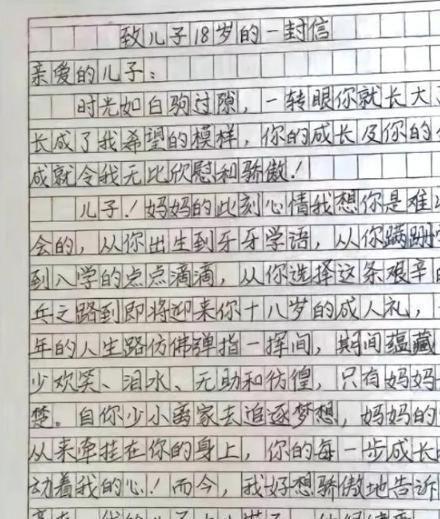 致儿子18岁的一封信
亲爱的儿子：
时光如白驹过隙，一转眼你就长大
长成了我希望的模样，你的成长及你的
成就令我无比欣慰和骄傲！
儿子！妈妈的此刻心情我想你是难
会的，从你出生到牙牙学语，从你蹒跚
到入学的点点滴滴，从你选择这条艰辛
兵之路到即将迎来你十八岁的成人礼，
年的人生路仿佛弹指一挥间，期间蕴藏
少欢笑、泪水、无助和彷徨，只有妈妈
楚。自你少小离家去追逐梦想，妈妈的
从来牵挂在你的身上，你的每一步成长
动着我的心！而今，我好想骄傲地告诉